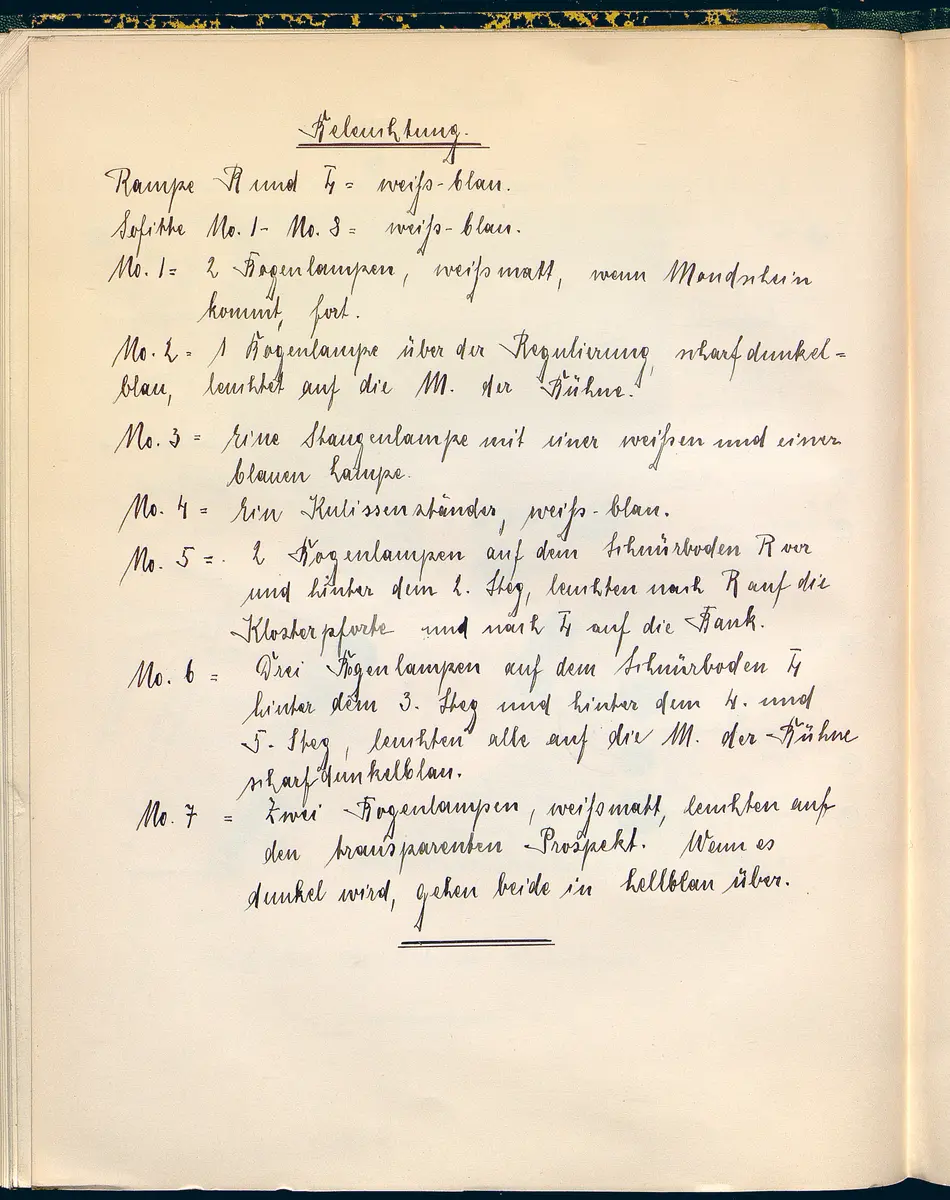 Beleuchtung.
Rampe R und L = weiß-blau.
Sofitte No. 1- No. 8 = weiß-blau.
No. 1 = 2 Bogenlampen, weißmatt, wenn Mondschein
kommt, fort.
No. 2 = 1 Bogenlampe über der Regulierung, scharf dunkel=
blau, leuchtet auf die M. der Bühne.
No. 3 = Eine Stangenlampe mit einer weißen und einer
blauen Lampe.
No. 4 = Ein Kulissenständer, weiß-blau.
No. 5 = 2 Bogenlampen auf dem Schnürboden R vor
und hinter dem 2. Steg, leuchten nach R auf die
Klosterpforte und nach L auf die Bank.
No. 6 = Drei Bogenlampen auf dem Schnürboden L
hinter dem 3. Steg und hinter dem 4. und
5. Steg, leuchten alle auf die M. der Bühne
scharf dunkelblau.
No. 7 = Zwei Bogenlampen, weißmatt, leuchten auf
den transparenten Prospekt. Wenn es
dunkel wird, gehen beide in hellblau über.